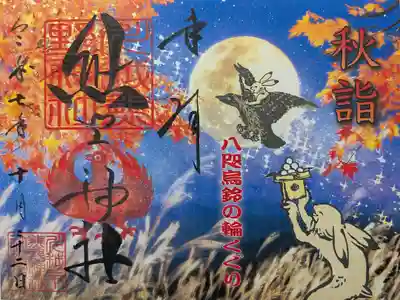 秋詣
八咫烏鈴の輪くぐり
奉拝
熊野神社
令和七年十月二十二日